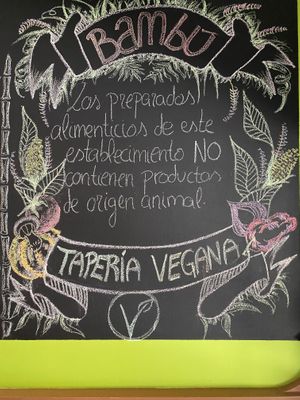 BAMBÚ
Los preparados
alimenticios de este
establecimiento NO
contienen productos
de origen animal.
TAPERÍA VEGANA
V